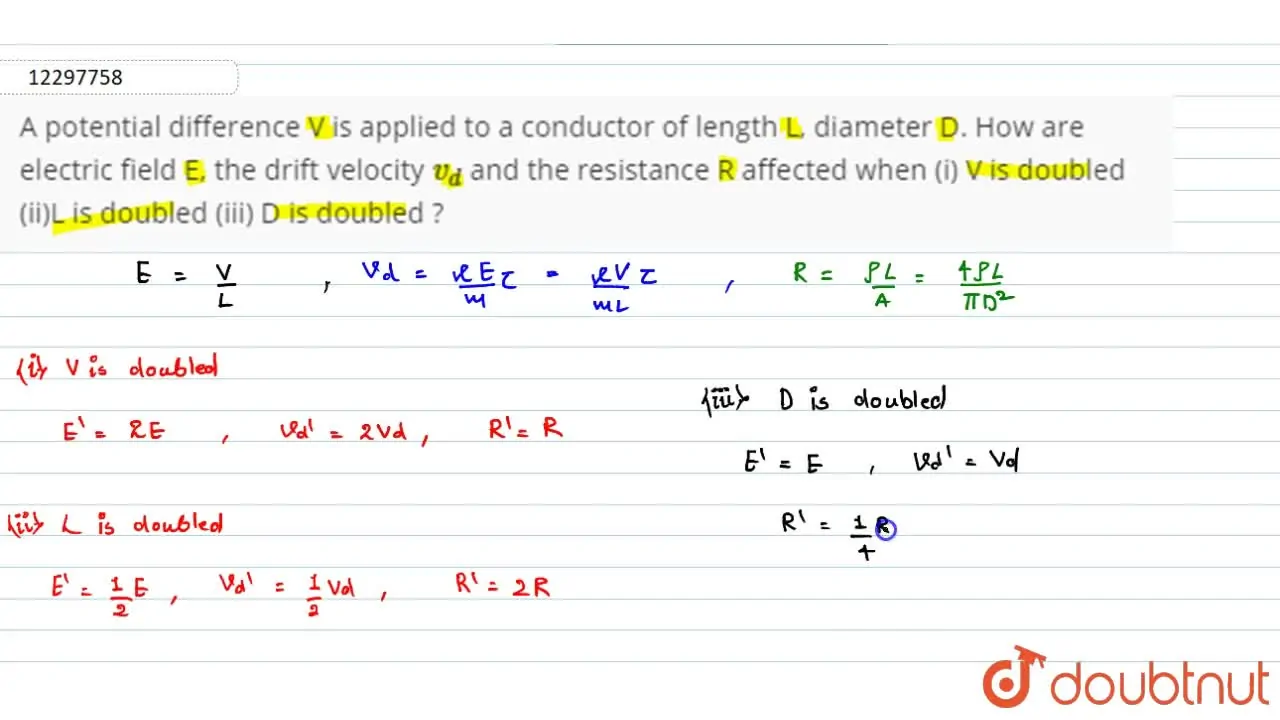 12297758
A potential difference V is applied to a conductor of length L, diameter D. How are
electric field E, the drift velocity v_d and the resistance R affected when (i) V is doubled
(ii)L is doubled (iii) D is doubled ?
E = V/L , vd = eE/m τ = eV/mL τ , R = ρL/A = 4ρL/πD²
(i) V is doubled
E' = 2E , vd' = 2vd , R' = R
(ii) L is doubled
E' = 1/2 E , vd' = 1/2 vd , R' = 2R
(iii) D is doubled
E' = E , vd' = vd
R' = 1/4 R
doubtnut